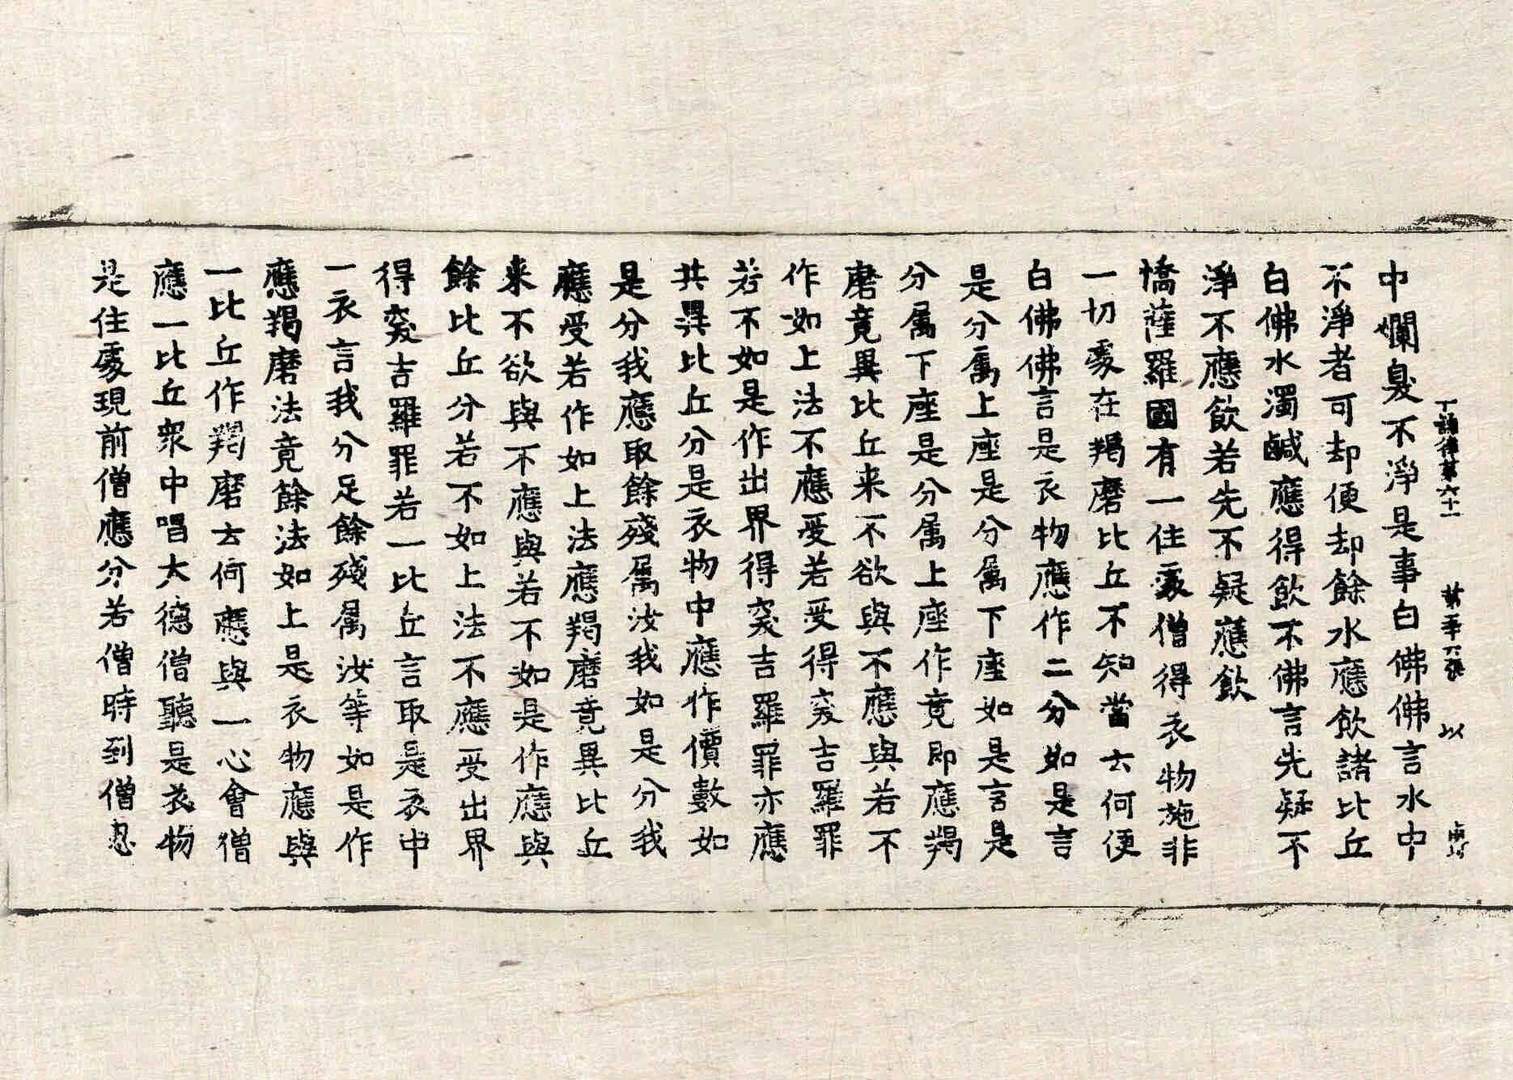 十誦律第六十一 第二十六張 以
中爛臰不淨是事白佛佛言水中
不淨者可却便却餘水應飲諸比丘
白佛水濁鹹應得飲不佛言先疑不
淨不應飲若先不疑應飲
憍薩羅國有一住處僧得衣物施非
一切處在羯磨比丘不知當云何便
白佛佛言是衣物應作二分如是言
是分屬上座是分屬下座如是言是
分屬下座是分屬上座作竟即應羯
磨竟異比丘来不欲與不應與若不
作如上法不應受若受得突吉羅罪
若不如是作出界得突吉羅罪亦應
共異比丘分是衣物中應作價數如
是分我應取餘殘屬汝我如是分我
應受若作如上法應羯磨竟異比丘
来不欲與不應與若不如是作應與
餘比丘分若不如上法不應受出界
得突吉羅罪若一比丘言取是衣中
一衣言我分足餘殘屬汝等如是作
應羯磨法竟餘法如上是衣物應與
一比丘作羯磨云何應與一心會僧
應一比丘衆中唱大德僧聽是衣物
是住處現前僧應分若僧時到僧忍